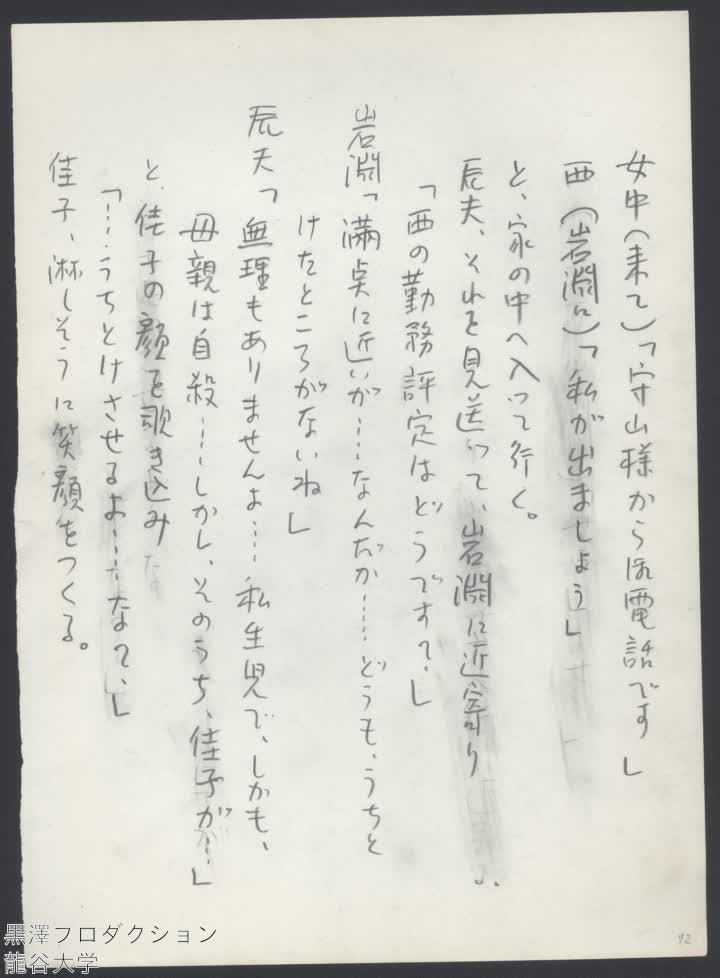 女中（来て）「守山様からお電話です」
西（岩淵に）「私が出ましょう」
と、家の中へ入って行く。
辰夫、それを見送って、岩淵に近寄り
「西の勤務評定はどうですて、」
岩淵「満点に近いが……なんだか……どうも、うちと
けたところがないね」
辰夫「無理もありませんよ……私生児で、しかも、
母親は自殺……しかし、そのうち、佳子が……」
と、佳子の顔を覗き込み
「……うちとけさせるよ……なァ、」
佳子、淋しそうに笑顔をつくる。
12
黒澤プロダクション
龍谷大学